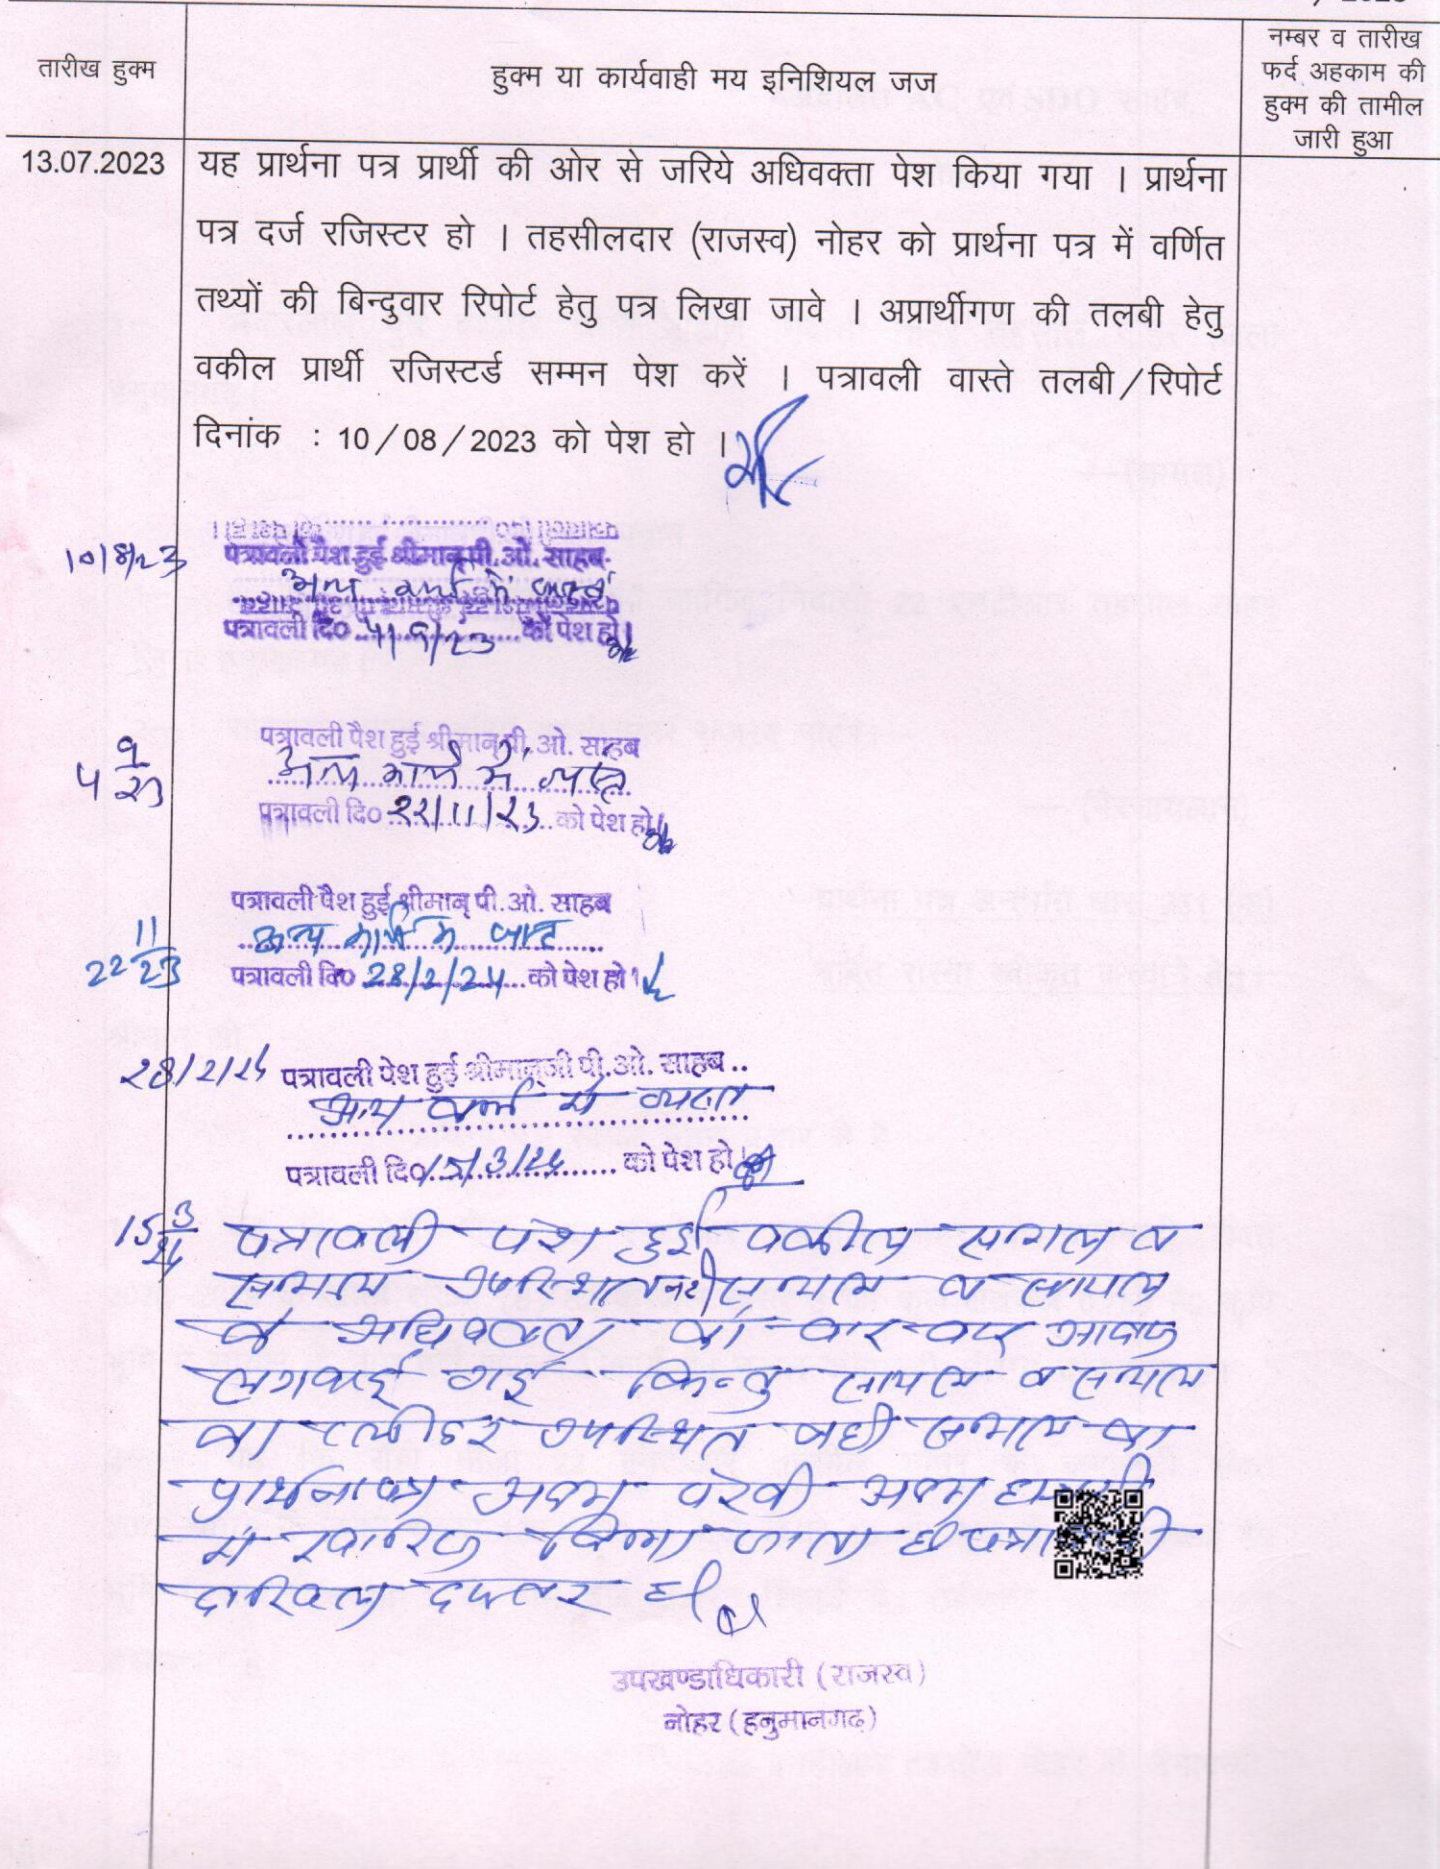 तारीख हुक्म
हुक्म या कार्यवाही मय इनिशियल जज
नम्बर व तारीख
फर्द अहकाम की
हुक्म की तामील
जारी हुआ
13.07.2023
यह प्रार्थना पत्र प्रार्थी की ओर से जरिये अधिवक्ता पेश किया गया । प्रार्थना
पत्र दर्ज रजिस्टर हो । तहसीलदार (राजस्व) नोहर को प्रार्थना पत्र में वर्णित
तथ्यों की बिन्दुवार रिपोर्ट हेतु पत्र लिखा जावे । अप्रार्थीगण की तलबी हेतु
वकील प्रार्थी रजिस्टर्ड सम्मन पेश करें । पत्रावली वास्ते तलबी/रिपोर्ट
दिनांक : 10/08/2023 को पेश हो ।
10/8/23 पत्रावली पैश हुई श्रीमान् पी.ओ. साहब
अन्य कार्य में व्यस्त
पत्रावली दि० 4/9/23 को पेश हो।
4 9/23 पत्रावली पैश हुई श्रीमान् पी.ओ. साहब
अन्य कार्य में व्यस्त
पत्रावली दि० 22/11/23 को पेश हो।
22 11/23 पत्रावली पैश हुई श्रीमान् पी.ओ. साहब
अन्य कार्य में व्यस्त
पत्रावली दि० 28/2/24 को पेश हो।
28/2/24 पत्रावली पेश हुई श्रीमान्‌जी पी.ओ. साहब..
अन्य कार्य में व्यस्त
पत्रावली दि० 15/3/24 को पेश हो।
15 3/24 पत्रावली पेश हुई वकील सायल व
उपस्थित नही सायल व सायल
के अधिवक्ता को बार-बार आवाज
लगवाई गई किन्तु सायल व सायल
का प्लीडर उपस्थित नही सायल का
प्रार्थना पत्र अदम पैरवी अदम हाजरी
में खारिज किया जाता है पत्रावली
दाखिल दफ्तर हो
उपखण्डाधिकारी (राजस्व)
नोहर (हनुमानगढ़)